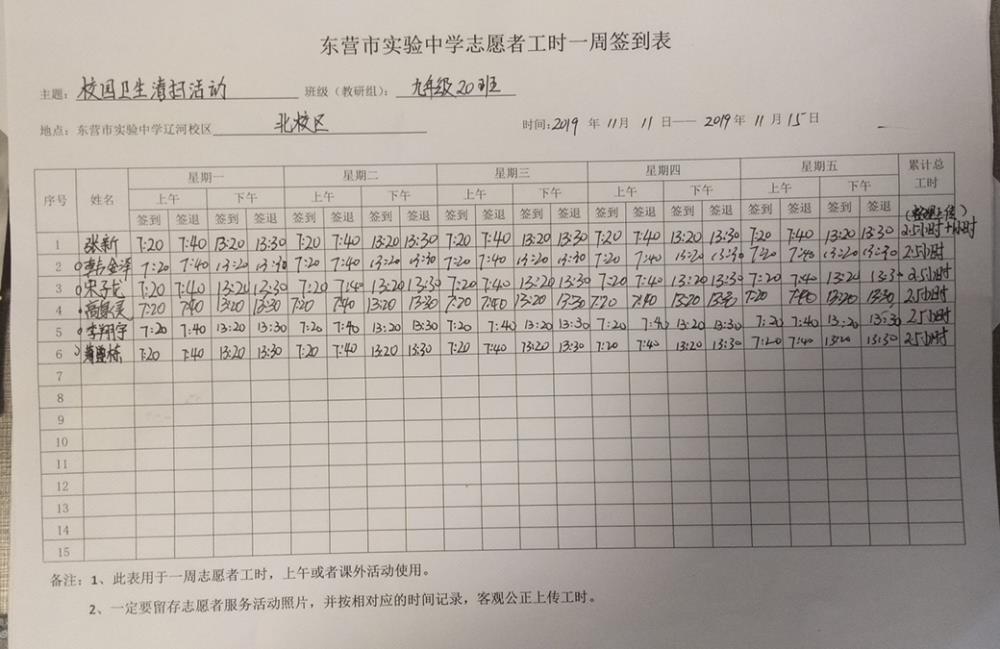 东营市实验中学志愿者工时一周签到表
主题：校园卫生清扫活动 班级（教研组）：九年级20班
地点：东营市实验中学辽河校区 北校区 时间：2019 年 11 月 11 日—— 2019 年 11 月 15 日
序号 姓名 星期一 星期二 星期三 星期四 星期五 累计总工时
上午 下午 上午 下午 上午 下午 上午 下午 上午 下午
签到 签退 签到 签退 签到 签退 签到 签退 签到 签退 签到 签退 签到 签退 签到 签退 签到 签退 签到 签退
1 张新 7:20 7:40 13:20 13:30 7:20 7:40 13:20 13:30 7:20 7:40 13:20 13:30 7:20 7:40 13:20 13:30 7:20 7:40 13:20 13:30 2.5小时+1小时
2 7:20 7:40 13:20 13:30 7:20 7:40 13:20 13:30 7:20 7:40 13:20 13:30 7:20 7:40 13:20 13:30 7:20 7:40 13:20 13:30 2.5小时
3 宋子龙 7:20 7:40 13:20 13:30 7:20 7:40 13:20 13:30 7:20 7:40 13:20 13:30 7:20 7:40 13:20 13:30 7:20 7:40 13:20 13:30 2.5小时
4 7:20 7:40 13:20 13:30 7:20 7:40 13:20 13:30 7:20 7:40 13:20 13:30 7:20 7:40 13:20 13:30 7:20 7:40 13:20 13:30 2.5小时
5 李翔宇 7:20 7:40 13:20 13:30 7:20 7:40 13:20 13:30 7:20 7:40 13:20 13:30 7:20 7:40 13:20 13:30 7:20 7:40 13:20 13:30 2.5小时
6 7:20 7:40 13:20 13:30 7:20 7:40 13:20 13:30 7:20 7:40 13:20 13:30 7:20 7:40 13:20 13:30 7:20 7:40 13:20 13:30 2.5小时
7
8
9
10
11
12
13
14
15
备注：1、此表用于一周志愿者工时，上午或者课外活动使用。
2、一定要留存志愿者服务活动照片，并按相对应的时间记录，客观公正上传工时。